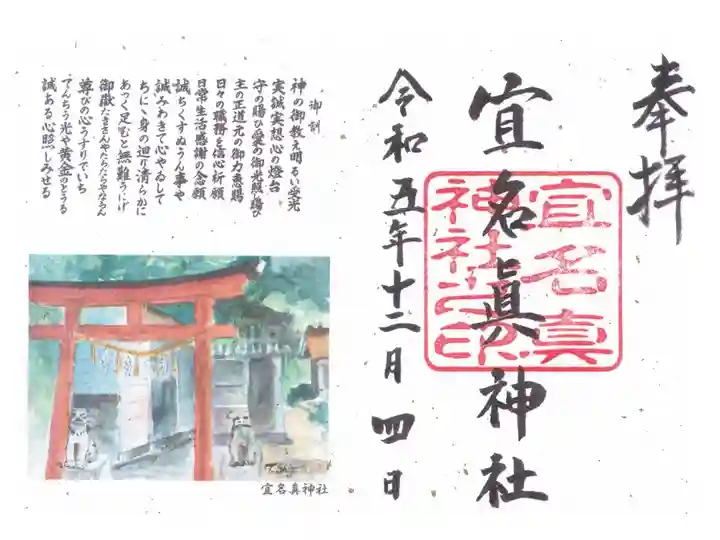 奉拝
宜名真神社
宜名真
神社之印
令和五年十二月四日
御訓
神の御教え明るい愛光
実誠実想心の燈台
守の賜ひ愛の御光照賜ひ
主の正道元の御力恵賜
日々の職務を信心祈願
日常生活感謝の念願
誠ちくすぬうん事や
誠みわきて心やゐして
ちにゝ身の廻り清らかに
あっく足むと無難うにげ
御嶽たきさんやたらたらやなうん
尊びの心うすりでいち
てんちう光や黄金のとうる
誠ある心照しみせる
宜名真神社